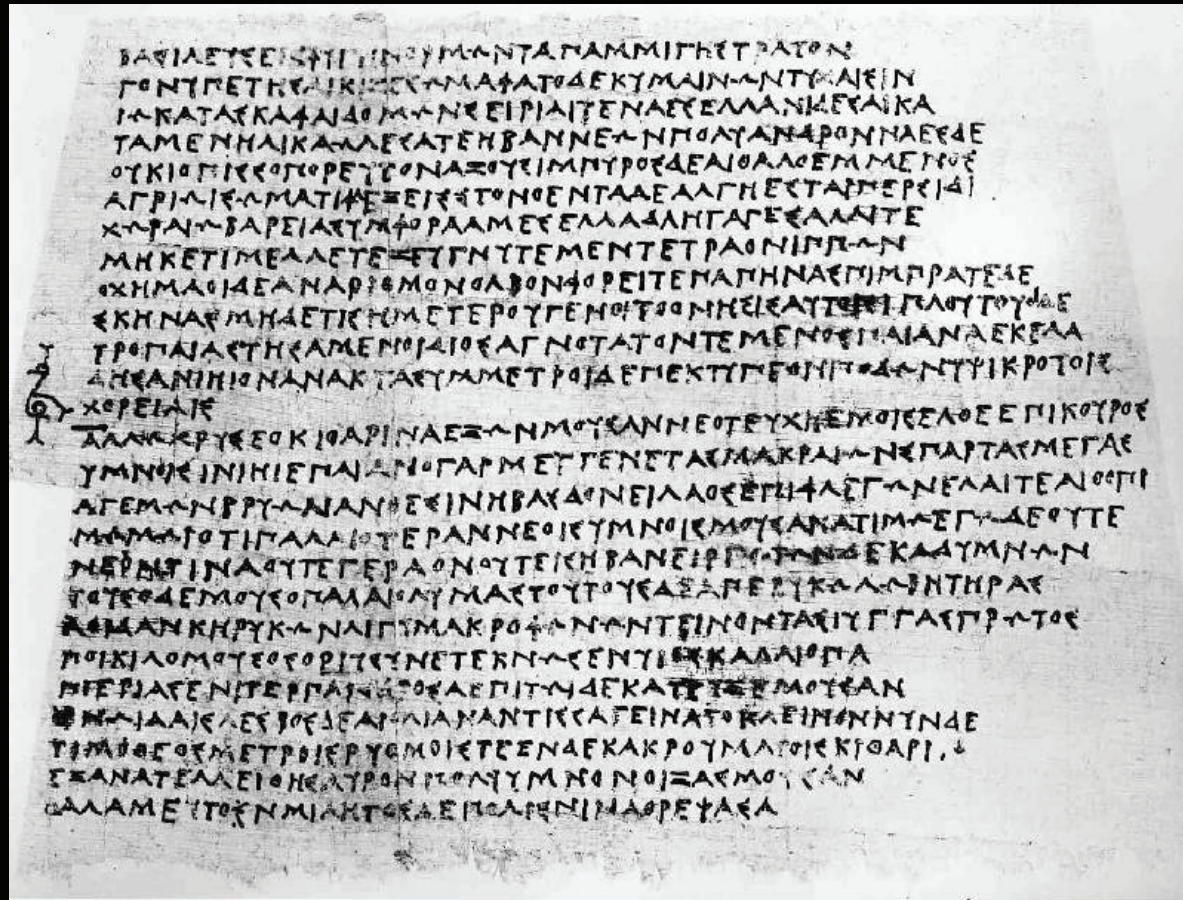 ΒΑΣΙΛΕΥΣΕΙΣΦΥΓΗΝΟΡΜΩΝΤΑΠΑΜΜΙΓΗΣΤΡΑΤΟΝ
ΓΟΝΥΠΕΤΗΣΑΙΚΙΖΕΣΩΜΑΦΑΤΟΔΕΚΥΜΑΙΝΩΝΤΥΧΑΙΣΙΝ
ΙΩΚΑΤΑΣΚΑΦΑΙΔΟΜΩΝΣΕΙΡΙΑΙΤΕΝΑΕΣΕΛΛΑΝΙΔΕΣΑΙΚΑ
ΤΑΜΕΝΗΛΙΚΑΩΛΕΣΑΤΕΗΒΑΝΝΕΩΝΠΟΛΥΑΝΔΡΟΝΝΑΕΣΔΕ
ΟΥΚΙΟΠΙΣΣΟΠΟΡΕΥΤΟΝΑΞΟΥΣΙΜΠΥΡΟΣΔΕΑΙΘΑΛΟΕΜΜΕΝΟΣ
ΑΓΡΙΩΙΣΩΜΑΤΙΦΛΕΞΕΙΣΣΤΟΝΟΕΝΤΑΔΕΑΛΓΗΕΣΤΑΙΠΕΡΣΙΔΙ
ΧΩΡΑΙΩΒΑΡΕΙΑΣΥΜΦΟΡΑΑΜΕΣΕΛΛΑΔΑΗΓΑΓΕΣΑΛΛΙΤΕ
ΜΗΚΕΤΙΜΕΛΛΕΤΕΖΕΥΓΝΥΤΕΜΕΝΤΕΤΡΑΟΝΙΠΠΩΝ
ΟΧΗΜΑΟΙΔΕΑΝΑΡΙΘΜΟΝΟΛΒΟΝΦΟΡΕΙΤΕΠΑΠΗΝΑΣΠΙΜΠΡΑΤΕΔΕ
ΣΚΗΝΑΣΜΗΔΕΤΙΣΗΜΕΤΕΡΟΥΓΕΝΟΙΤΟΟΝΗΣΙΣΑΥΤΟΙΣΙΠΛΟΥΤΟΥΟΙΔΕ
ΤΡΟΠΑΙΑΣΤΗΣΑΜΕΝΟΙΔΙΟΣΑΓΝΟΤΑΤΟΝΤΕΜΕΝΟΣΠΑΙΑΝΑΕΚΕΛΑ
ΔΗΣΑΝΙΗΙΟΝΑΝΑΚΤΑΣΥΜΜΕΤΡΟΙΔΕΠΕΚΤΥΠΕΟΝΠΟΔΩΝΥΨΙΚΡΟΤΟΙΣ
ΧΟΡΕΙΑΙΣ
ΑΛΛΩΧΡΥΣΕΟΚΙΘΑΡΙΝΑΕΞΩΝΜΟΥΣΑΝΝΕΟΤΕΥΧΗΕΜΟΙΣΕΛΘΕΕΠΙΚΟΥΡΟΣ
ΥΜΝΟΙΣΙΝΙΗΙΕΠΑΙΑΝΟΓΑΡΜΕΥΓΕΝΕΤΑΣΜΑΚΡΑΙΩΝΣΠΑΡΤΑΣΜΕΓΑΣ
ΑΓΕΜΩΝΒΡΥΩΝΑΝΘΕΣΙΝΗΒΑΣΔΟΝΕΙΛΑΟΣΕΠΙΦΛΕΓΩΝΕΛΑΙΤΕΑΙΘΟΠΙ
ΜΩΜΩΙΟΤΙΠΑΛΑΙΟΤΕΡΑΝΝΕΟΙΣΥΜΝΟΙΣΜΟΥΣΑΝΑΤΙΜΩΕΓΩΔΕΟΥΤΕ
ΝΕΟΝΤΙΝΑΟΥΤΕΓΕΡΑΟΝΟΥΤΕΙΣΗΒΑΝΕΙΡΓΩΤΩΝΔΕΚΑΔΥΜΝΩΝ
ΤΟΥΣΔΕΜΟΥΣΟΠΑΛΑΙΟΛΥΜΑΣΤΟΥΤΟΥΣΔΑΠΕΡΥΚΩΛΩΒΗΤΗΡΑΣ
ΑΟΙΔΑΝΚΗΡΥΚΩΝΛΙΓΥΜΑΚΡΟΦΩΝΩΝΤΕΙΝΟΝΤΑΣΙΥΓΓΑΣΠΡΩΤΟΣ
ΠΟΙΚΙΛΟΜΟΥΣΟΣΟΡΙΥΣΥΝΕΤΕΚΝΩΣΕΝΥΙΟΣΚΑΛΛΙΟΠΑ
ΠΙΕΡΙΑΣΕΝΙΤΕΡΠΑΝΔΡΟΣΔΕΠΙΤΩΙΔΕΚΑΤΕΥΞΕΜΟΥΣΑΝ
ΕΝΩΙΔΑΙΣΛΕΣΒΟΣΔΕΑΙΩΛΙΑΝΑΝΤΙΣΣΑΓΕΙΝΑΤΟΚΛΕΙΝΟΝΝΥΝΔΕ
ΤΙΜΟΘΕΟΣΜΕΤΡΟΙΣΡΥΘΜΟΙΣΤΕΕΝΔΕΚΑΚΡΟΥΜΑΤΟΙΣΚΙΘΑΡΙΝ
ΕΞΑΝΑΤΕΛΛΕΙΘΗΣΑΥΡΟΝΠΟΛΥΥΜΝΟΝΟΙΞΑΣΜΟΥΣΑΝ
ΘΑΛΑΜΕΥΤΟΝΜΙΛΗΤΟΣΔΕΠΟΛΙΣΝΙΝΑΘΡΕΨΑΣΑ